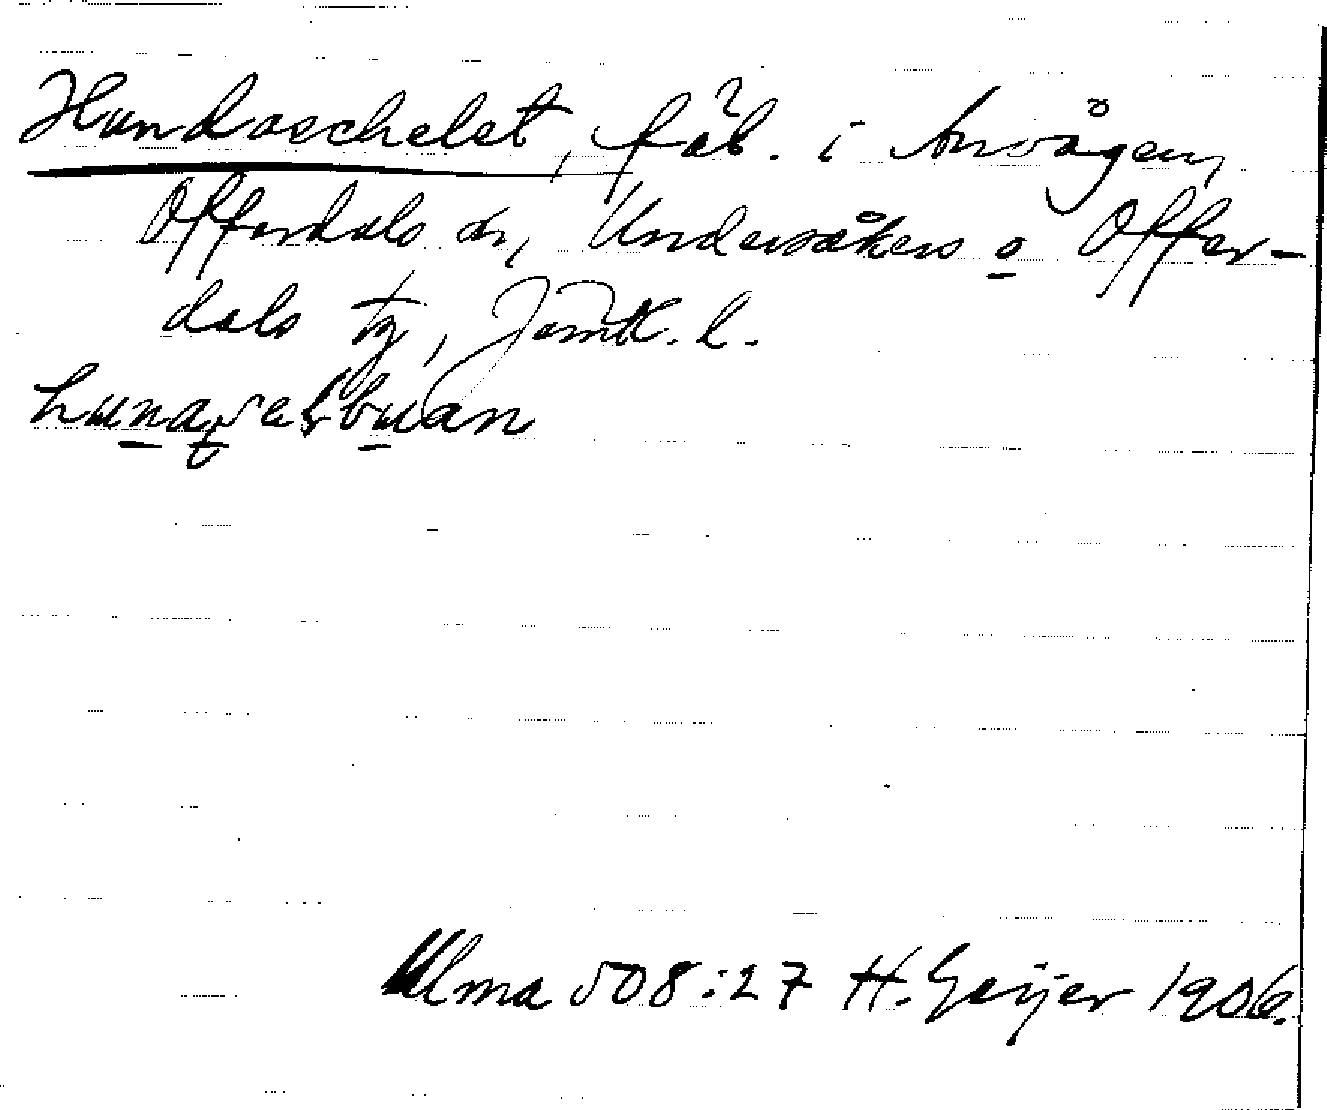 Hundaschelet, fäb. i Ånvågen,
Offerdals sn, Undersåkers o Offer-
dals tg, Jämtl. l.
Ulma 508:27 H. Geijer 1906.